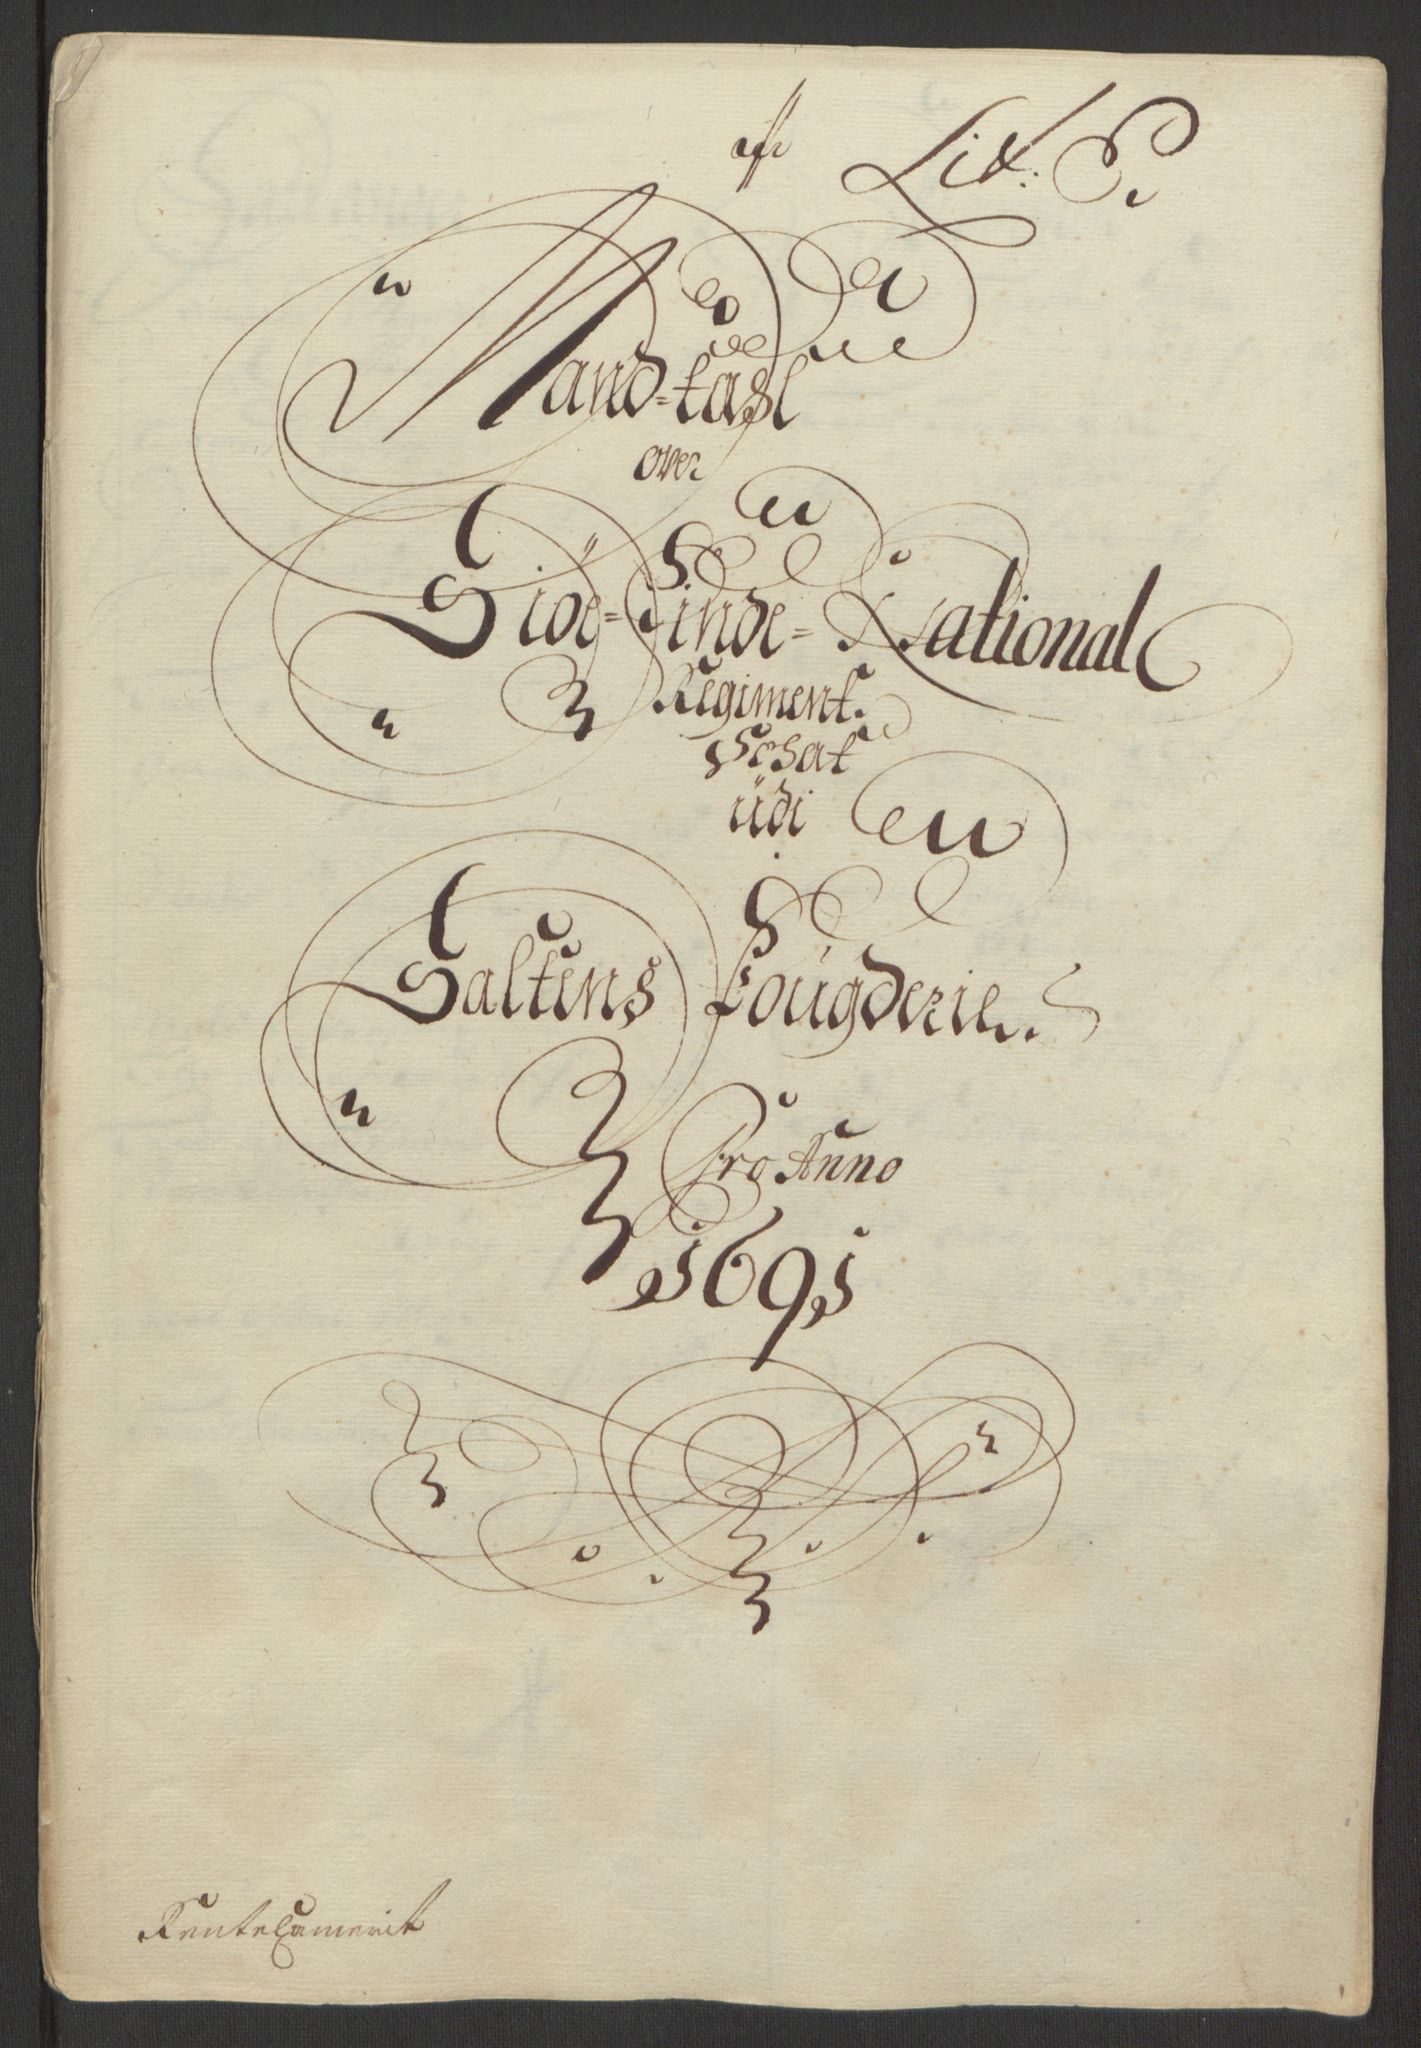 Lit: E.
Mand-tahl
over
Siöe-Finde-National
Regiment.
Schat
üdi
Saltens Fougderie.
Pro Anno
1691
RenteCamerit